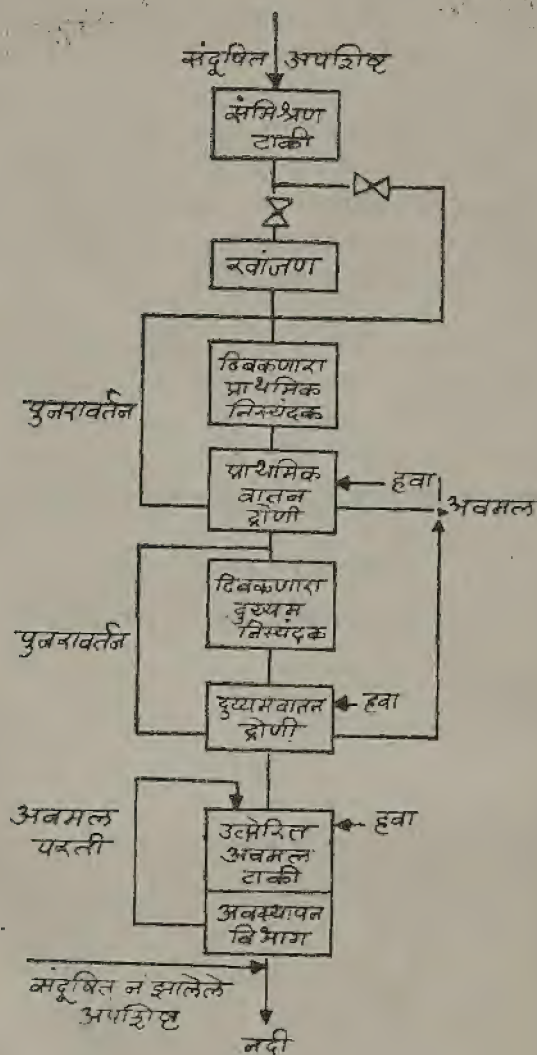 संदूषित अपशिष्ट
संमिश्रण
टाकी
खांजण
ठिबकणारा
प्राथमिक
निस्यंदक
पुनरावर्तन
प्राथमिक
वातन
द्रोणी
हवा
अवमल
ठिबकणारा
दुय्यम
निस्यंदक
पुनरावर्तन
दुय्यम वातन
द्रोणी
हवा
अवमल
परती
उत्प्रेरित
अवमल
टाकी
हवा
अवस्थापन
विभाग
संदूषित न झालेले
अपशिष्ट
नदी